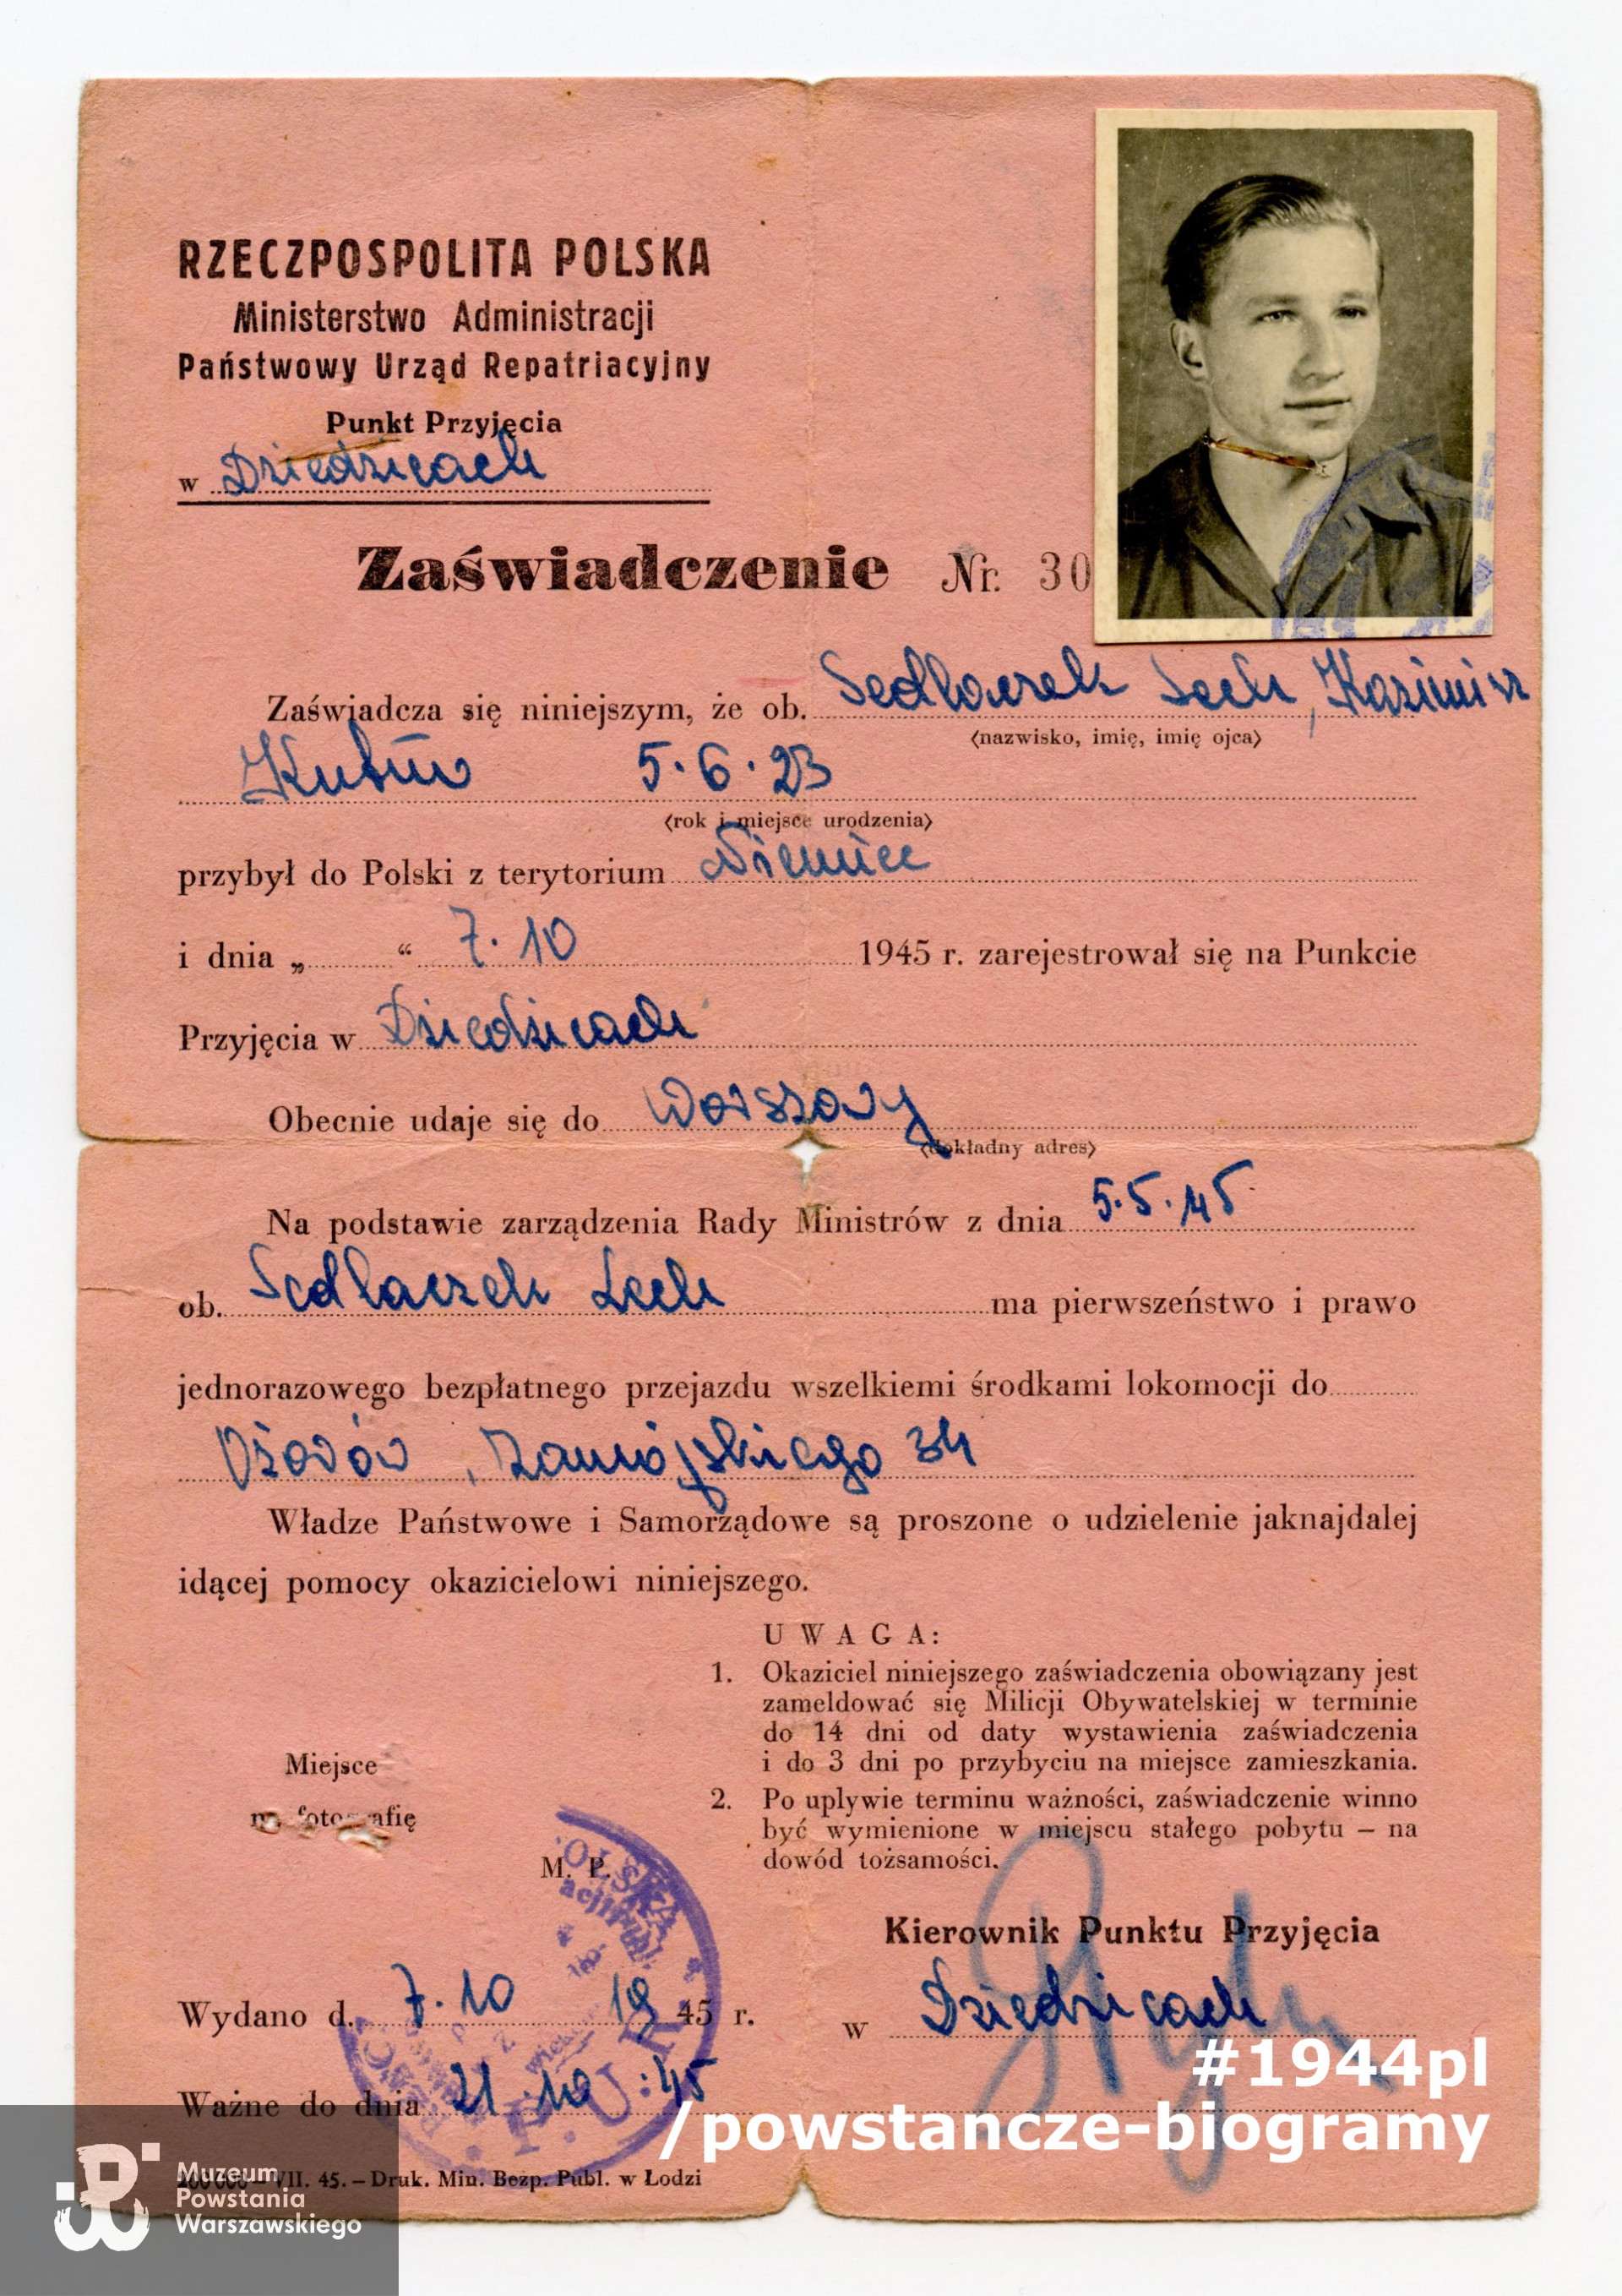 RZECZPOSPOLITA POLSKA
Ministerstwo Administracji
Państwowy Urząd Repatriacyjny
Punkt Przyjęcia
w Dziedzicach
Zaświadczenie Nr. 30
Zaświadcza się niniejszym, że ob. Sedlaczek Lech, Kazimierz
(nazwisko, imię, imię ojca)
Kutno 5.6.23
(rok i miejsce urodzenia)
przybył do Polski z terytorium Niemiec
i dnia „ “ 7.10 1945 r. zarejestrował się na Punkcie
Przyjęcia w Dziedzicach
Obecnie udaje się do Warszawy
(dokładny adres)
Na podstawie zarządzenia Rady Ministrów z dnia 5.5.45
ob. Sedlaczek Lech ma pierwszeństwo i prawo
jednorazowego bezpłatnego przejazdu wszelkiemi środkami lokomocji do
Ożarów, Zamojskiego 34
Władze Państwowe i Samorządowe są proszone o udzielenie jaknajdalej
idącej pomocy okazicielowi niniejszego.
UWAGA:
1. Okaziciel niniejszego zaświadczenia obowiązany jest
zameldować się Milicji Obywatelskiej w terminie
do 14 dni od daty wystawienia zaświadczenia
i do 3 dni po przybyciu na miejsce zamieszkania.
2. Po upływie terminu ważności, zaświadczenie winno
być wymienione w miejscu stałego pobytu — na
dowód tożsamości.
Miejsce
na fotografię
M. P.
Kierownik Punktu Przyjęcia
Wydano d. 7.10 1945 r.
w Dziedzicach
Ważne do dnia 21.10.45
P.U.R.
VII. 45. — Druk. Min. Bezp. Publ. w Łodzi
#1944pl
/powstancze-biogramy
Muzeum
Powstania
Warszawskiego